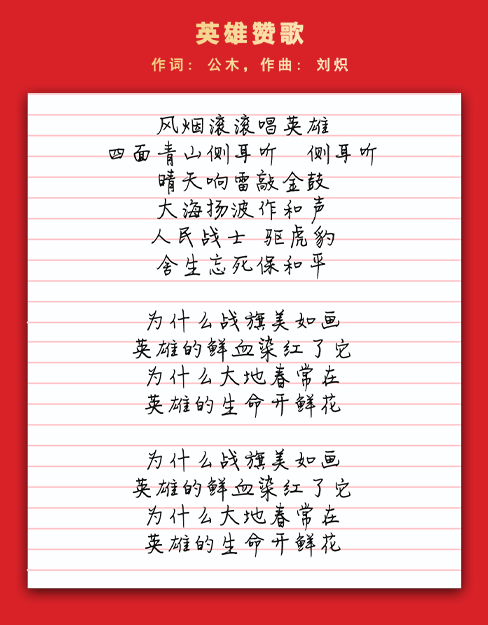 英雄赞歌
作词：公木，作曲：刘炽
风烟滚滚唱英雄
四面青山侧耳听　侧耳听
晴天响雷敲金鼓
大海扬波作和声
人民战士 驱虎豹
舍生忘死保和平
为什么战旗美如画
英雄的鲜血染红了它
为什么大地春常在
英雄的生命开鲜花
为什么战旗美如画
英雄的鲜血染红了它
为什么大地春常在
英雄的生命开鲜花